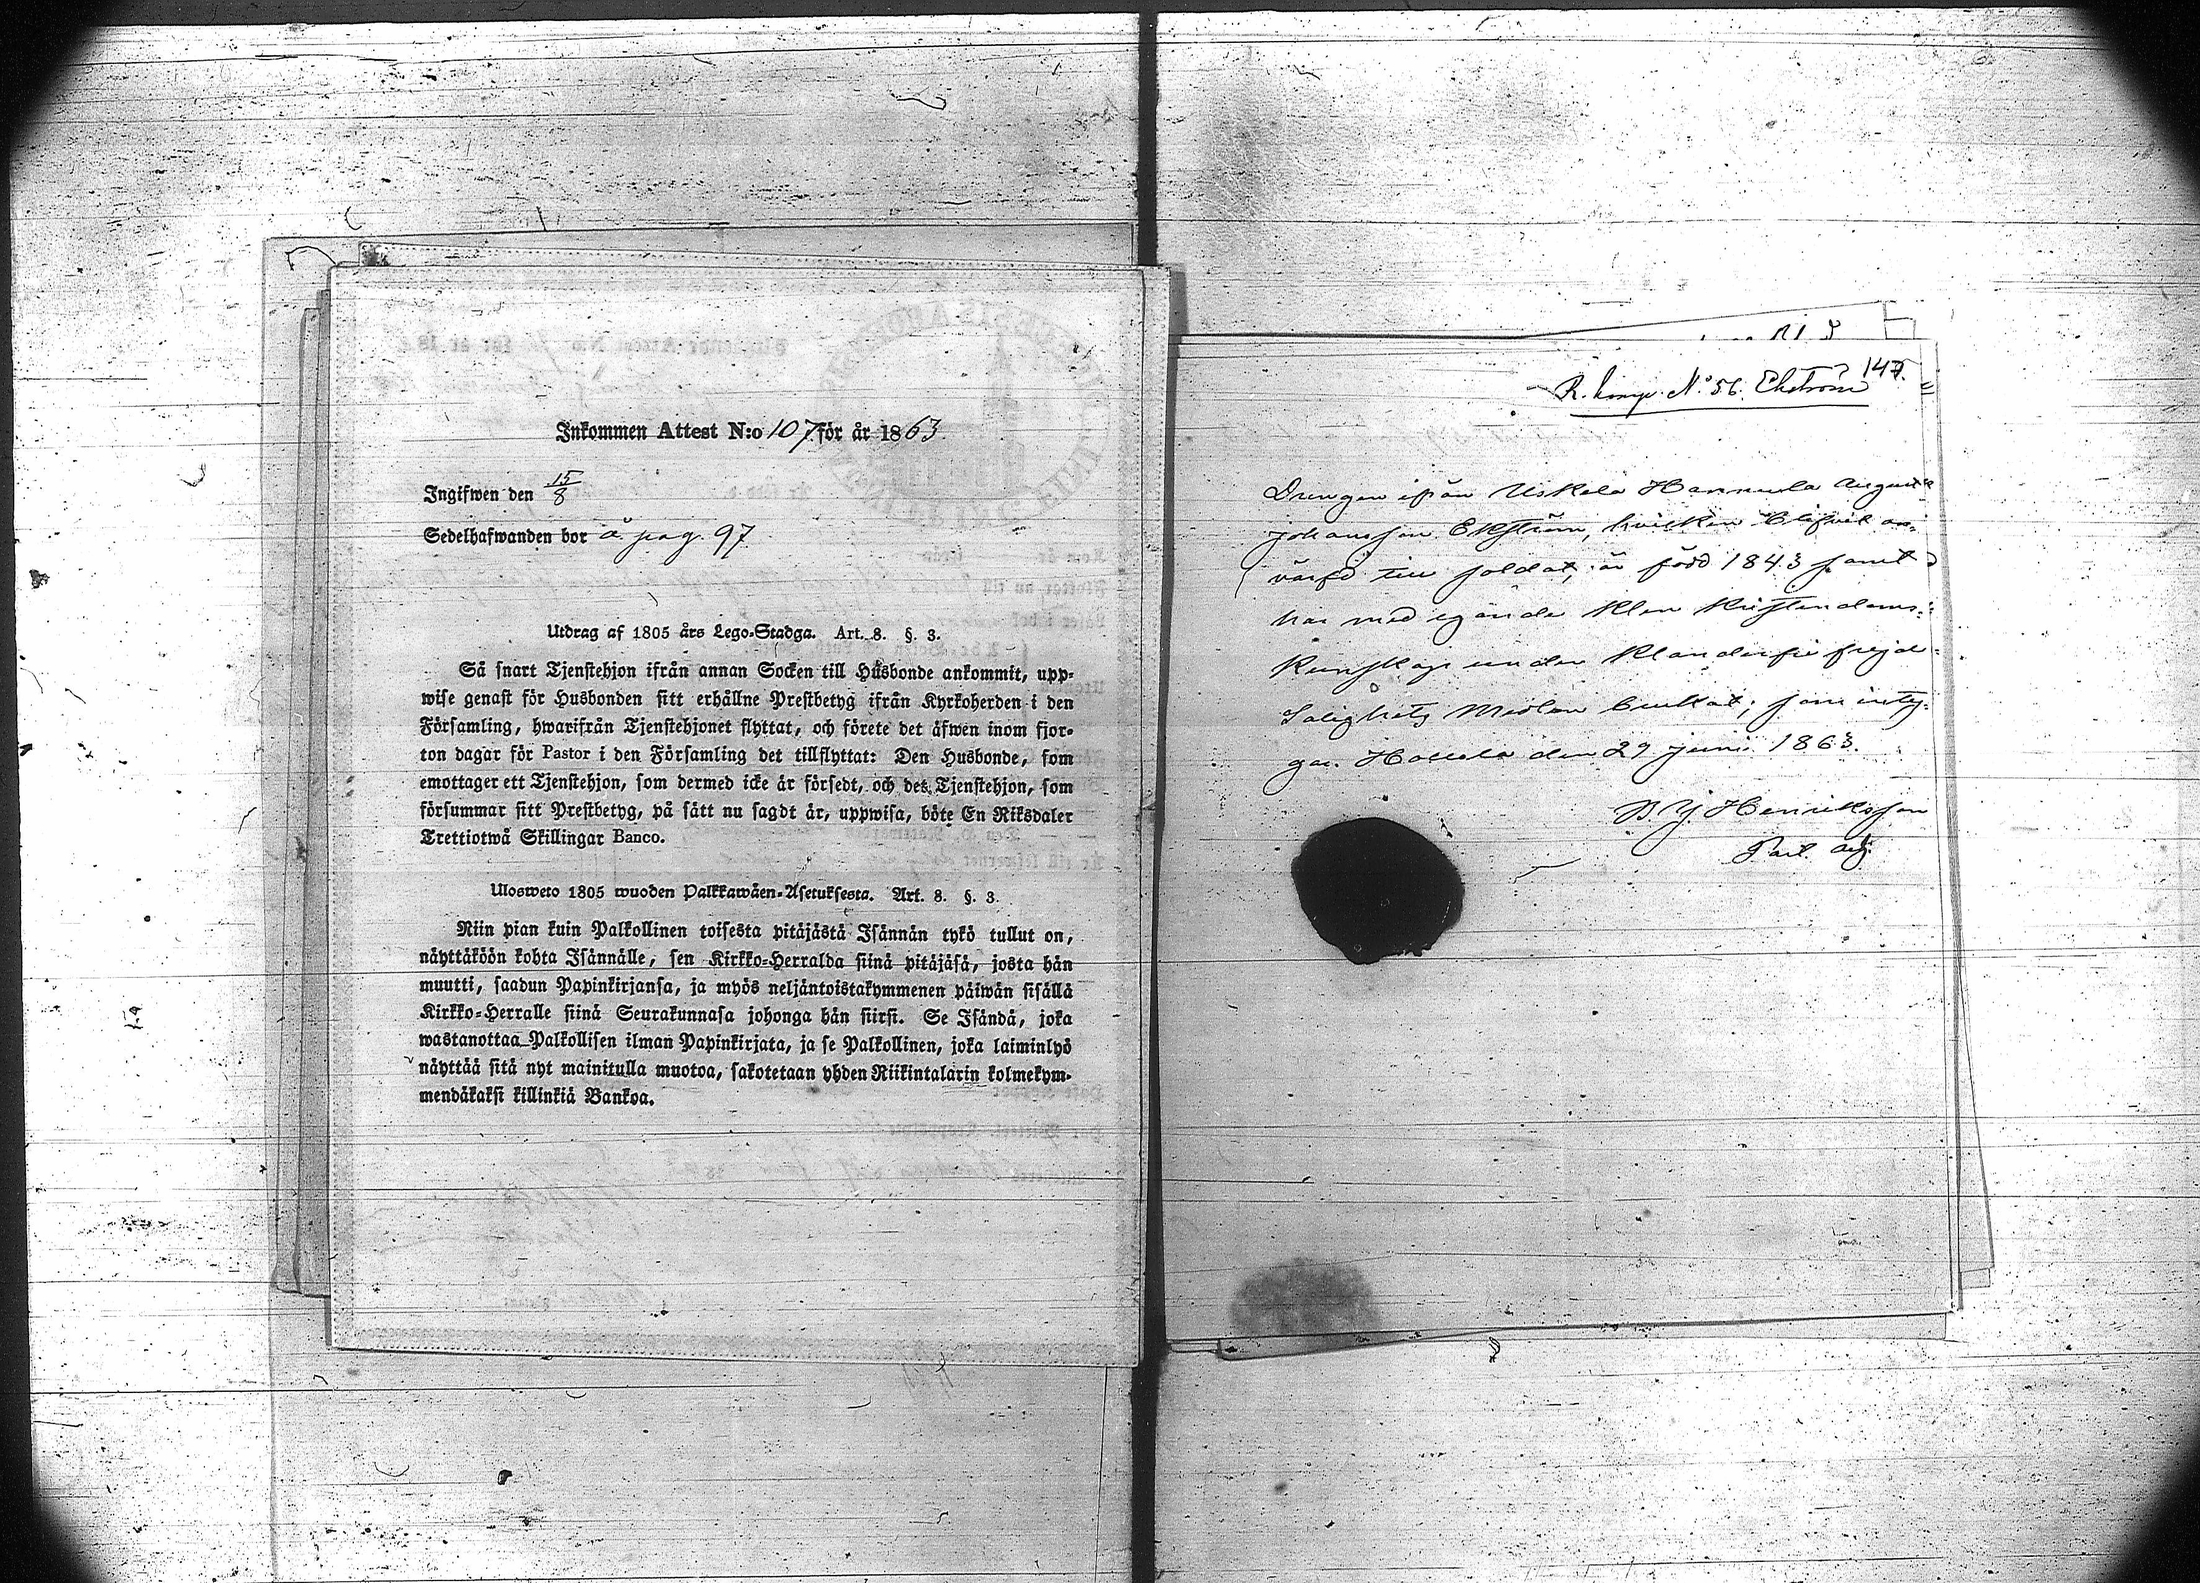 Inkommen Attest N:o 107 för år 1863.
Ingifwen den 15/8
Sedelhafwanden bor å pag. 97
Utdrag af 1805 års Lego-Stadga. Art. 8. §. 3.
Så snart Tjenstehjon ifrån annan Socken till Husbonde ankommit, upp-
wise genast för Husbonden sitt erhållne Prestbetyg ifrån Kyrkoherden i den
Församling, hwarifrån Tjenstehjonet flyttat, och förete det äfwen inom fjor-
ton dagar för Pastor i den Församling det tillflyttat: Den Husbonde, som
emottager ett Tjenstehjon, som dermed icke är försedt, och det Tjenstehjon, som
försummar sitt Prestbetyg, på sätt nu sagdt är, uppwisa, böte En Riksdaler
Trettiotwå Skillingar Banco.
Ulosweto 1805 wuoden Palkkawäen-Asetuksesta. Art. 8. §. 3.
Niin pian kuin Palkollinen toisesta pitäjästä Isännän tykö tullut on,
näyttäköön kohta Isännälle, sen Kirkko-Herralda siinä pitäjäsä, josta hän
muutti, saadun Papinkirjansa, ja myös neljäntoistakymmenen päiwän sisällä
Kirkko-Herralle siinä Seurakunnasa johonga hän siirsi. Se Isändä, joka
wastanottaa Palkollisen ilman Papinkirjata, ja se Palkollinen, joka laiminlyö
näyttää sitä nyt mainitulla muotoa, sakotetaan yhden Riikintalarin kolmekym-
mendäkaksi killinkiä Bankoa.
147.
R. komp. N:o 56. Ekström
Drengen ifrån Uskela Hannula August
Johansson Ekström, hvilken blifvit an-
värfd till soldat, är född 1843 samt
har med egande klen Kristendoms-
kunskap under klanderfri frejd
Salighets Medlen brukat; som inty-
gar. Uskela den 29 juni 1863.
Henriksson
Past. adj.